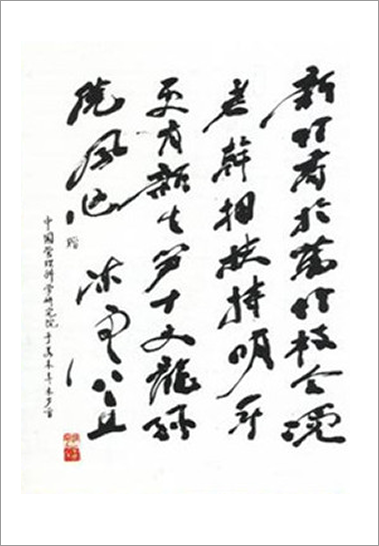 新竹高於舊竹枝全憑
老幹相扶持明年
更有新生笋十丈龍孫
繞鳳池
贈
中国管理科学研究院